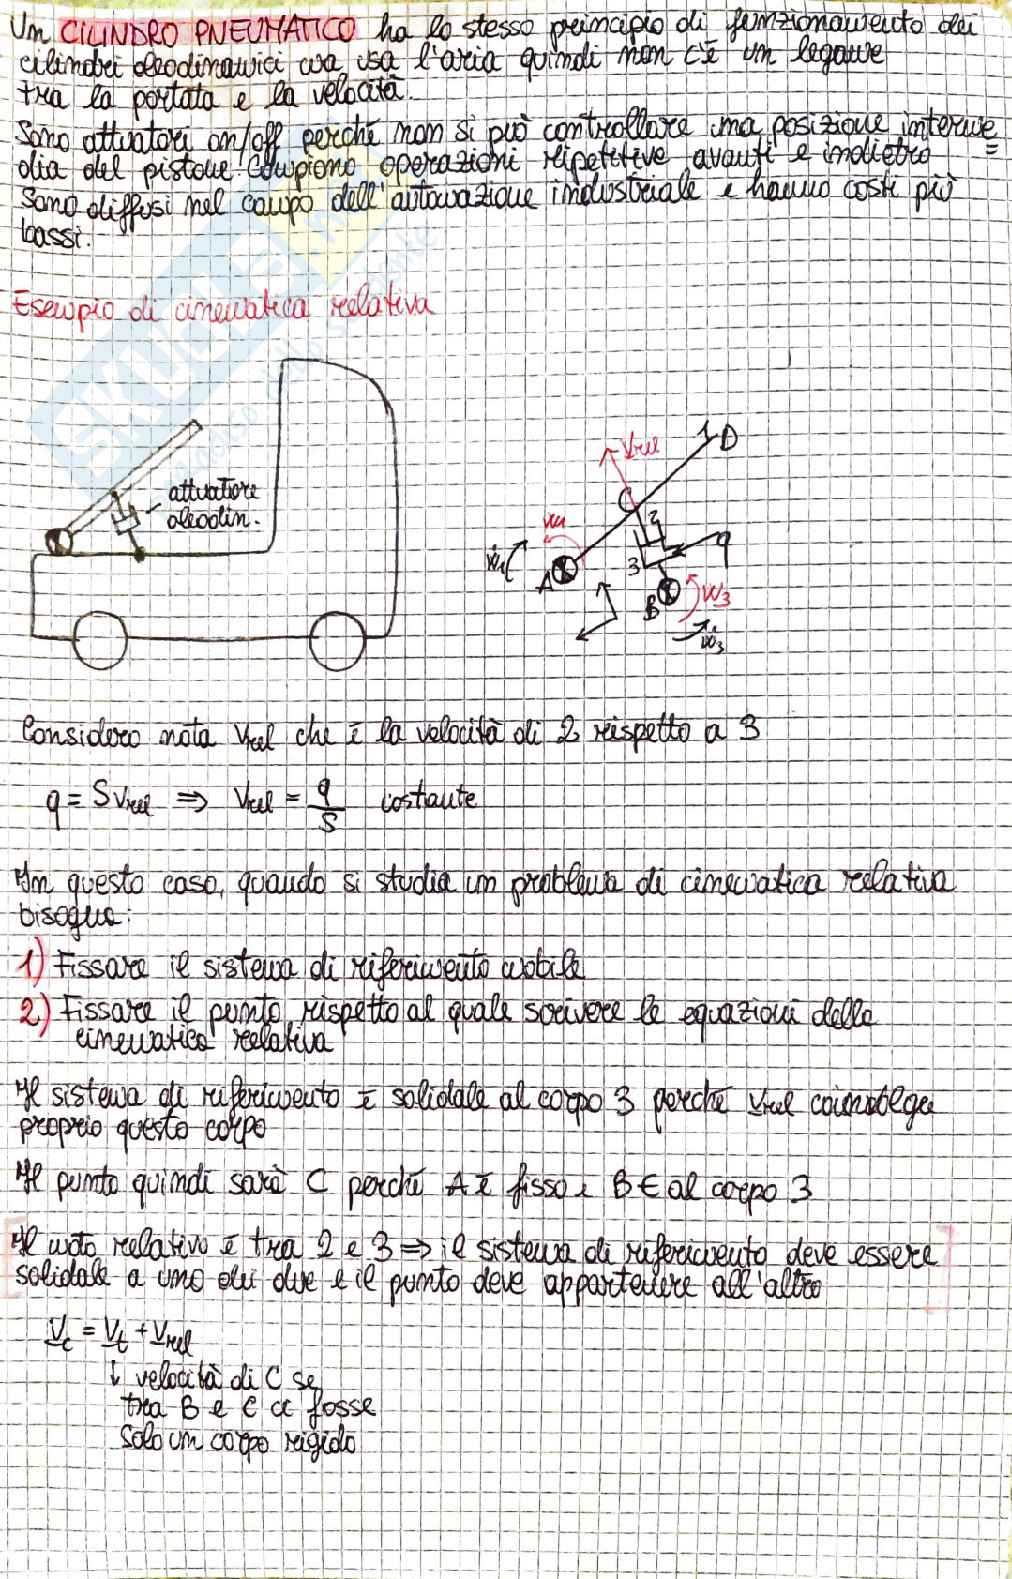 Un CILINDRO PNEUMATICO ha lo stesso principio di funzionamento dei
cilindri oleodinamici ma usa l'aria quindi non c'è un legame
tra la portata e la velocità.
Sono attuatori on/off perché non si può controllare una posizione interme=
dia del pistone. Compiono operazioni ripetitive avanti e indietro
Sono diffusi nel campo dell'automazione industriale e hanno costi più
bassi.
Esempio di cinematica relativa
attuatore
oleodin.
D
Vrel
C
2
q
ω1
ω̇1
A
3
B
ω3
ω̇3
Considero nota Vrel che è la velocità di 2 rispetto a 3
q = S Vrel ⇒ Vrel = q/S costante
In questo caso, quando si studia un problema di cinematica relativa
bisogna:
1) Fissare il sistema di riferimento mobile
2) Fissare il punto rispetto al quale scrivere le equazioni della
cinematica relativa
Il sistema di riferimento è solidale al corpo 3 perché Vrel coinvolge
proprio questo corpo
Il punto quindi sarà C perché A è fisso e B ∈ al corpo 3
[Il moto relativo è tra 2 e 3 ⇒ il sistema di riferimento deve essere
solidale a uno dei due e il punto deve appartenere all'altro]
Vc = Vt + Vrel
↓ velocità di C se
tra B e C ci fosse
solo un corpo rigido